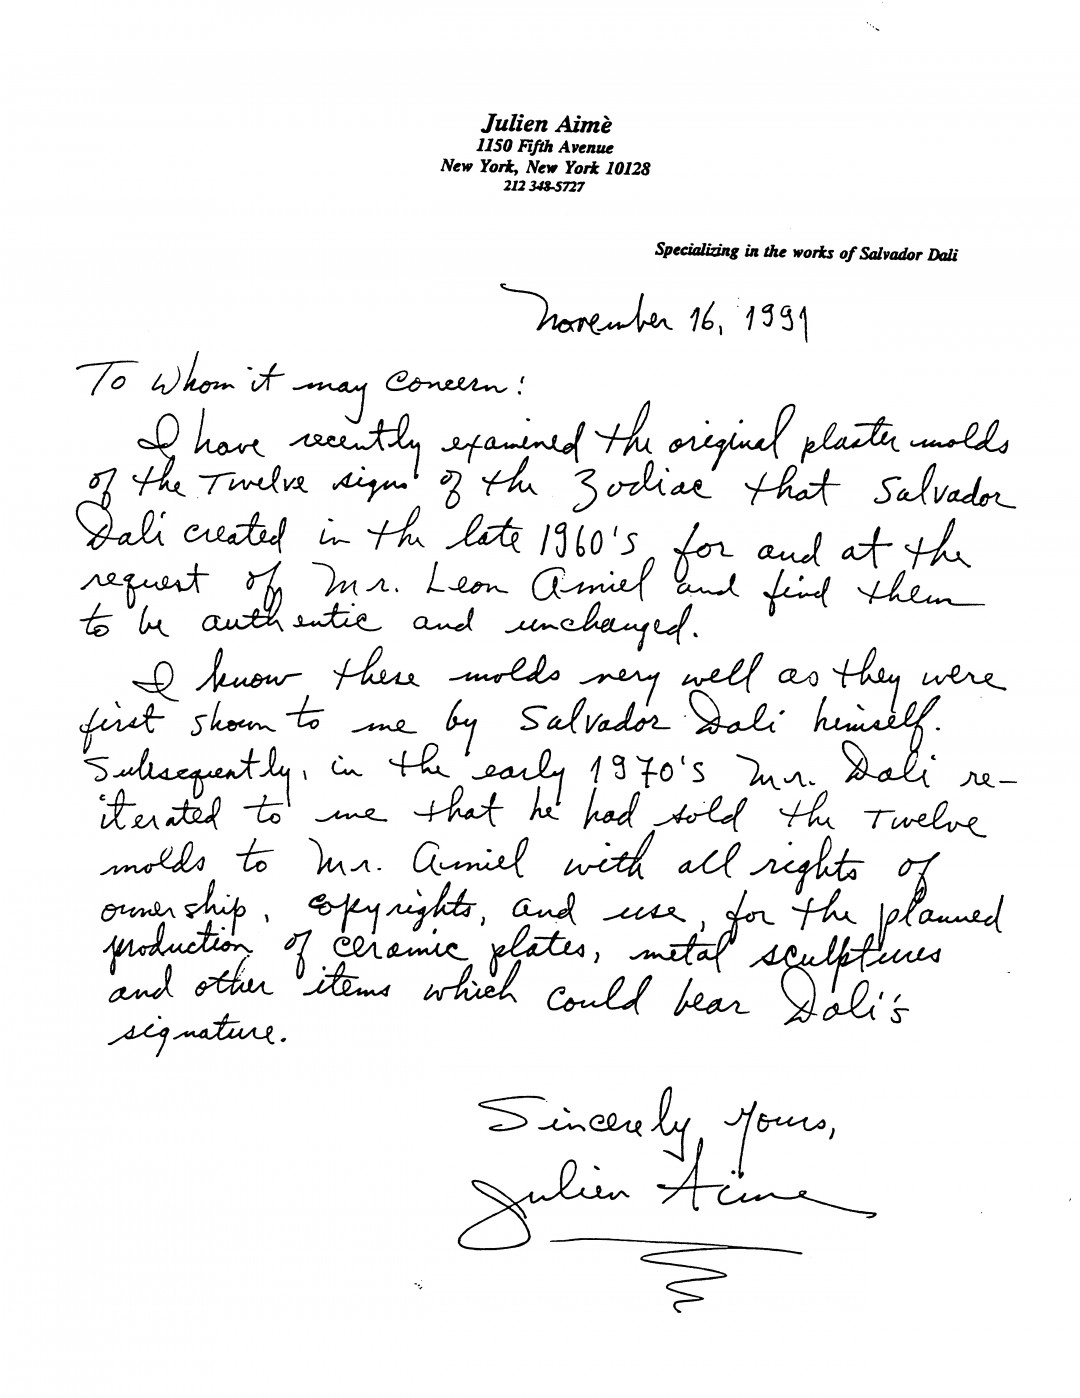 Julien Aimè
1150 Fifth Avenue
New York, New York 10128
212 348-5727
Specializing in the works of Salvador Dali
November 16, 1991
To Whom it may Concern:
I have recently examined the original plaster molds
of the Twelve signs of the Zodiac that Salvador
Dali created in the late 1960's, for and at the
request of Mr. Leon Amiel and find them
to be authentic and unchanged.
I know these molds very well as they were
first shown to me by Salvador Dali himself.
Subsequently, in the early 1970's Mr. Dali re-
iterated to me that he had sold the Twelve
molds to Mr. Amiel with all rights of
ownership, copyrights, and use, for the planned
production of ceramic plates, metal sculptures
and other items which could bear Dali's
signature.
Sincerely yours,
Julien Aime